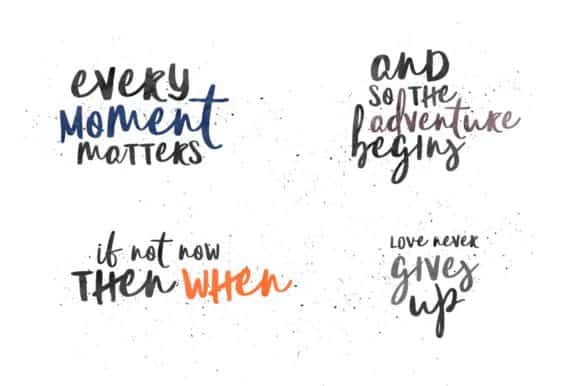 every
Moment
matters
and
so the
adventure
begins
if not now
then when
love never
gives
up